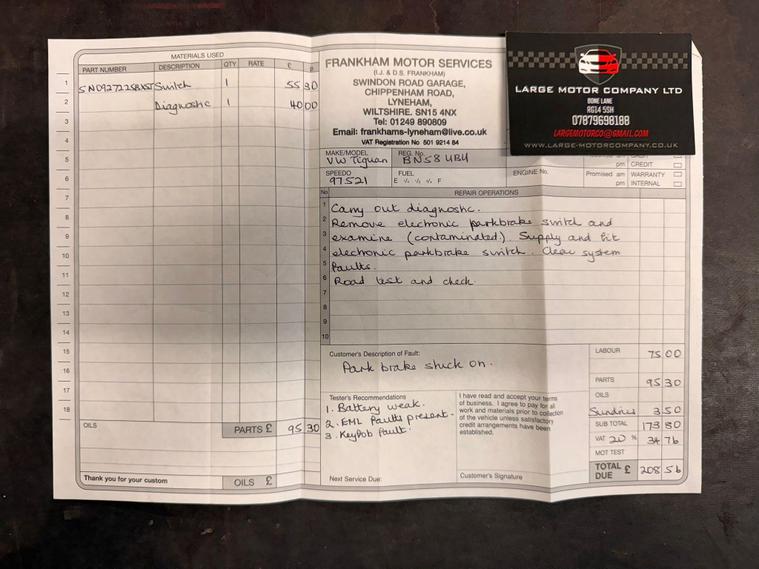 MATERIALS USED
PART NUMBER DESCRIPTION QTY RATE £ p
1 Switch 1 55 30
2 Diagnostic 1 40 00
3
5
6
7
8
9
10
11
12
13
14
15
16
17
18
OILS
PARTS £ 95 30
Thank you for your custom
OILS £
FRANKHAM MOTOR SERVICES
(I.J. & D.S. FRANKHAM)
SWINDON ROAD GARAGE,
CHIPPENHAM ROAD,
LYNEHAM,
WILTSHIRE. SN15 4NX
Tel: 01249 890809
Email: frankhams-lyneham@live.co.uk
VAT Registration No 501 9214 84
LARGE MOTOR COMPANY LTD
BONE LANE
RG14 5SH
07879698188
LARGEMOTORCO@GMAIL.COM
WWW.LARGE-MOTORCOMPANY.CO.UK
MAKE/MODEL REG. No.
VW Tiguan BN58 UBU
pm CREDIT
SPEEDO FUEL ENGINE No. Promised am WARRANTY
97521 E ¼ ½ ¾ F pm INTERNAL
No REPAIR OPERATIONS
1 Carry out diagnostic.
2 Remove electronic parkbrake switch and
3 examine (contaminated). Supply and fit
4 electronic parkbrake switch. Clear system
5 faults.
6 Road test and check
7
8
9
10
Customer's Description of Fault:
Park brake stuck on.
Tester's Recommendations
1. Battery weak.
2. EML Faults present.
3. Keyfob fault.
I have read and accept your terms
of business. I agree to pay for all
work and materials prior to collection
of the vehicle unless satisfactory
credit arrangements have been
established.
Next Service Due:
Customer's Signature
LABOUR 75 00
PARTS 95 30
OILS
Sundries 3 50
SUB TOTAL 173 80
VAT 20 % 34 76
MOT TEST
TOTAL DUE £ 208 56